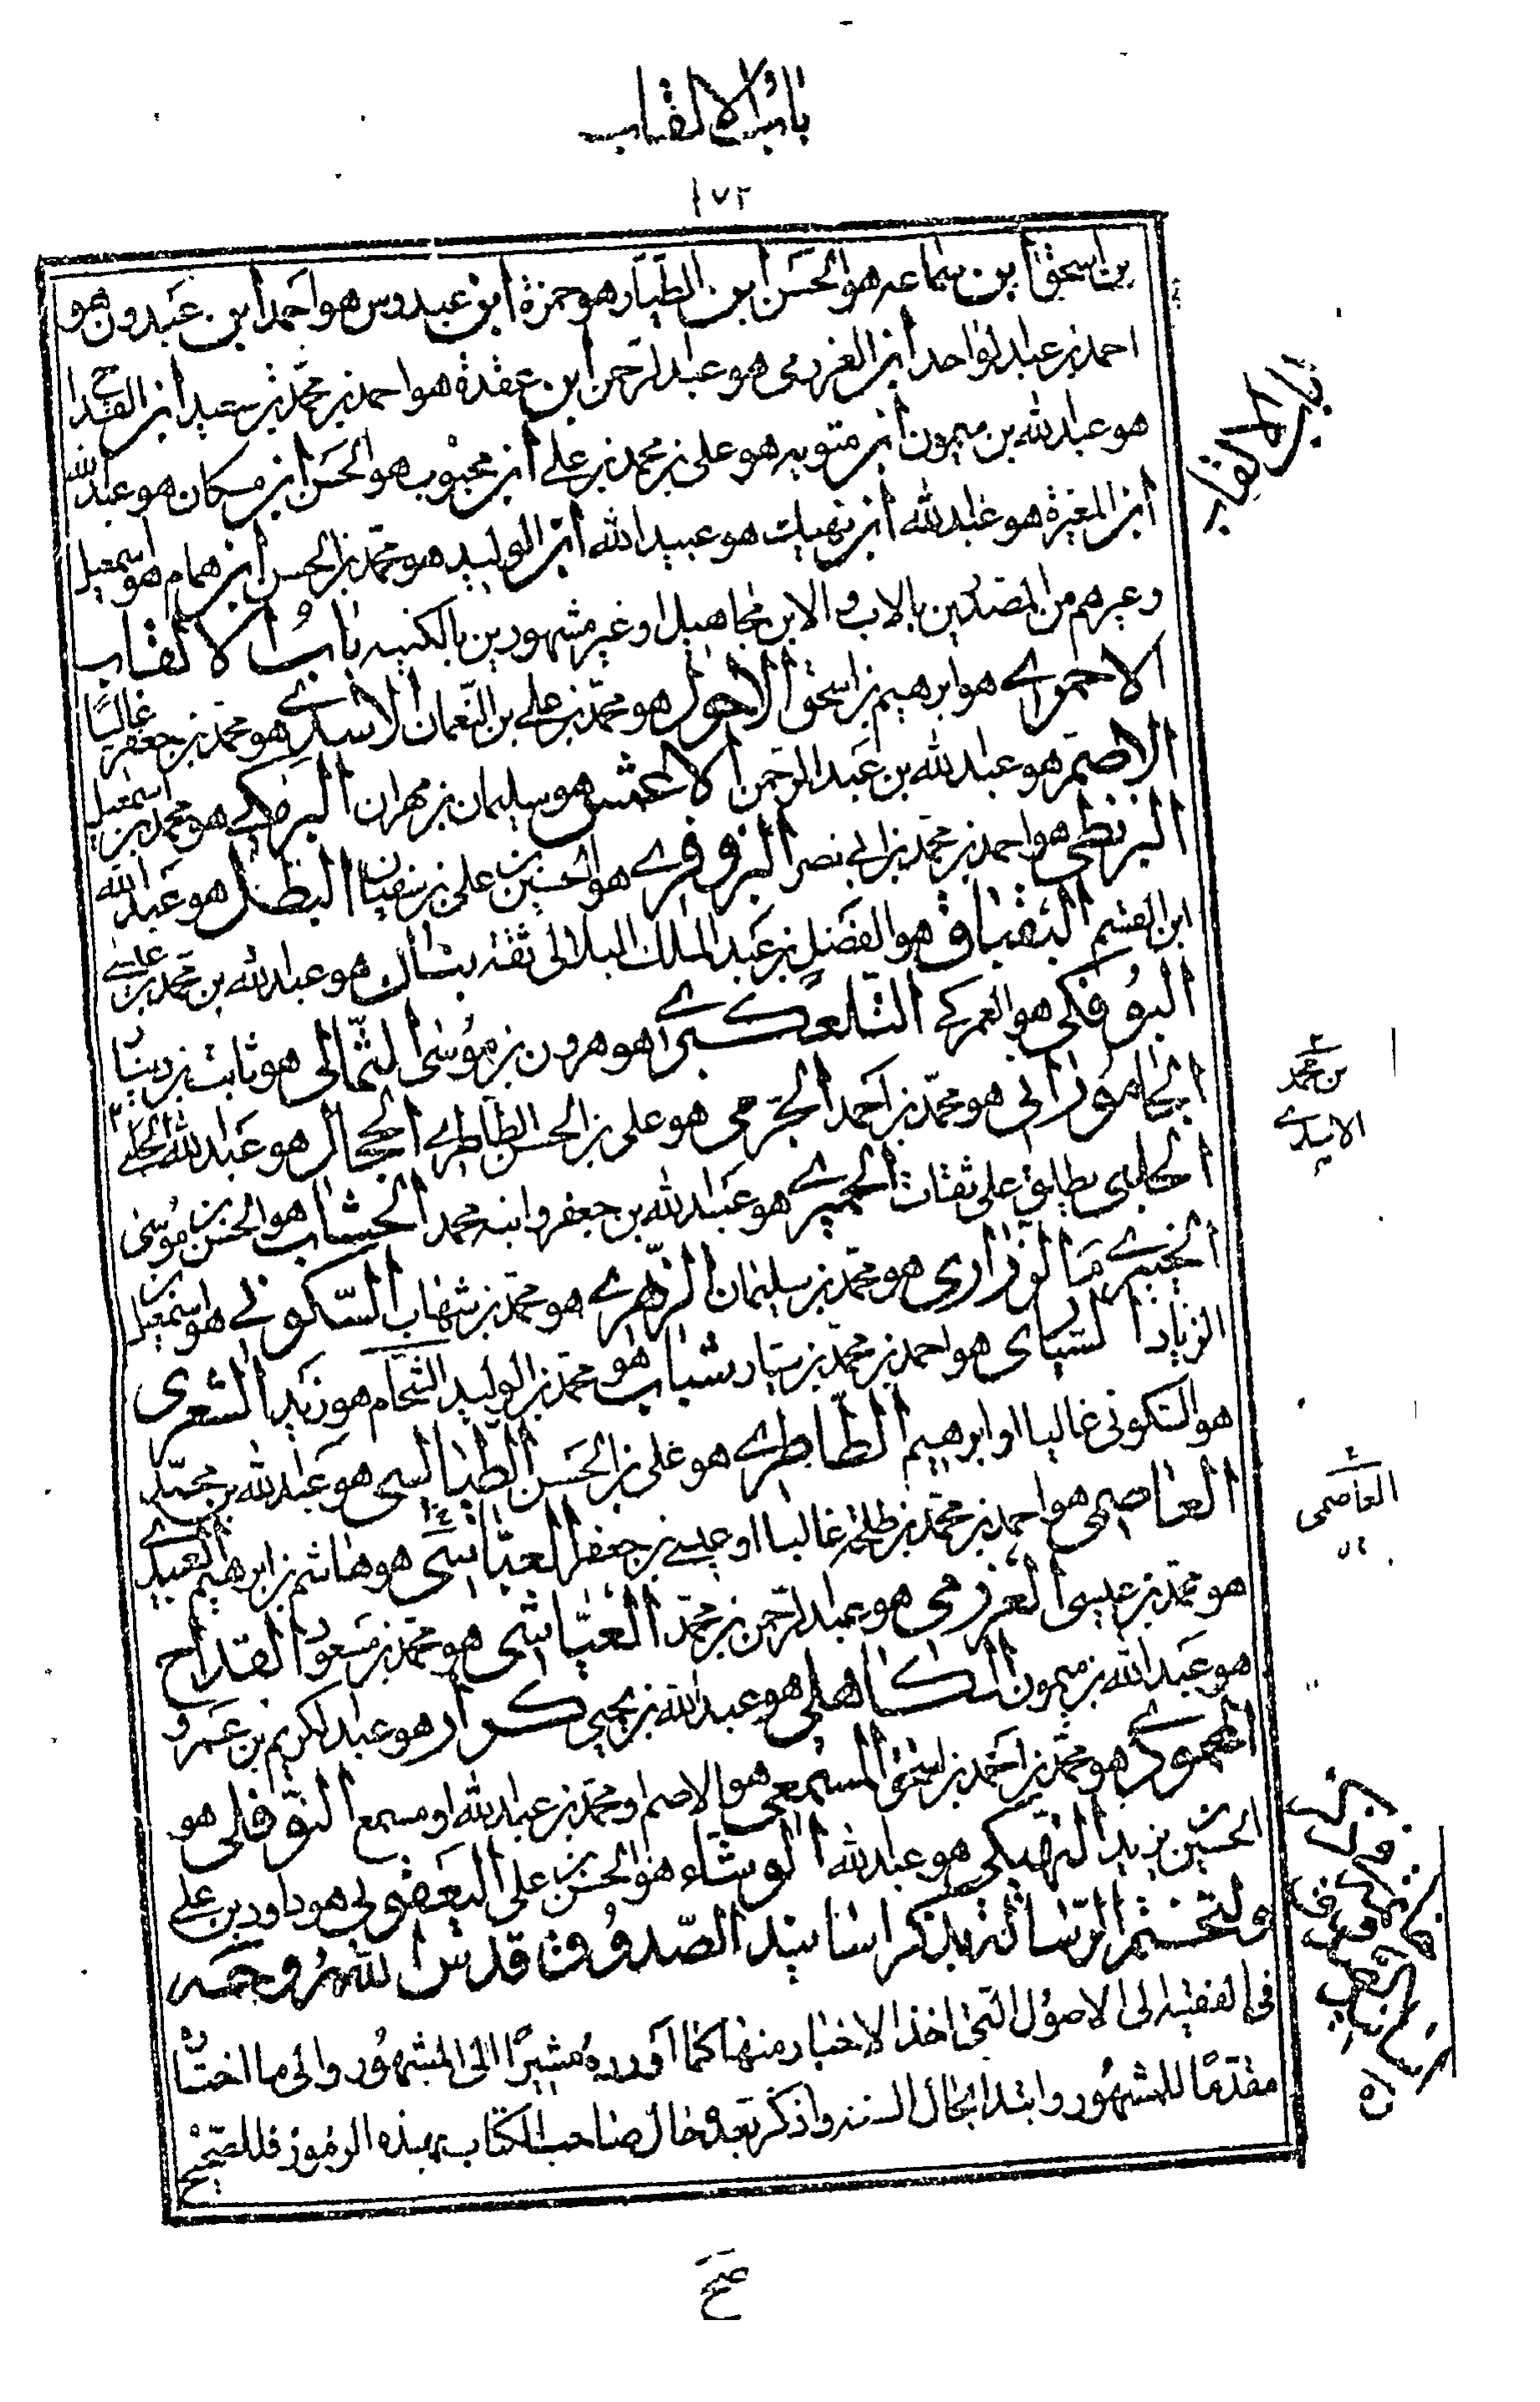 باب الالقاب
١٧٢
بن اسحق ابن سماعه هو الحسن ابن الطيار هو حمزة ابن عبدوس هو احمد ابن عبدون هو
احمد بن عبد الواحد ابن العزرمى هو عبد الرحمن ابن عقدة هو احمد بن محمد بن سعيد ابن القداح
هو عبد الله بن ميمون ابن متويه هو على بن محمد بن على ابن محبوب هو الحسن ابن مسكان هو عبد الله
ابن المغيرة هو عبد الله ابن نهيك هو عبيد الله ابن الوليد هو محمد بن الحسن ابن همام هو اسمعيل
وغيرهم من المصدرين بالاب والابن مجاهيل او غير مشهورين بالكنيه باب الالقاب
الاحمرى هو ابرهيم بن اسحق الاحول هو محمد بن على بن النعمان الاسدى هو محمد بن جعفر غالبا
الاصم هو عبد الله بن عبد الرحمن الاعمش هو سليمان بن مهران البرمكى هو محمد بن اسمعيل
البزنطى هو احمد بن محمد بن ابى نصر البزوفرى هو الحسين بن على بن سفيان البطل هو عبد الله
ابن القسم البقباق هو الفضل بن عبد الملك البلالى ثقة بنان هو عبد الله بن محمد بن عيسى
البوفكى هو العمركى التلعكبرى هو هرون بن موسى الثمالى هو ثابت بن دينار
الجامورانى هو محمد بن احمد الجرمى هو على بن الحسن الطاطرى الحجال هو عبد الله الحلبى
الحلبى يطلق على ثقات الحميرى هو عبد الله بن جعفر وابنه محمد الخشاب هو الحسن بن موسى
الخيبرى مَا الزرارى هو محمد بن سليمان الزهرى هو محمد بن شهاب السكونى هو اسمعيل بن
الزياد السيارى هو احمد بن محمد بن سيار شباب هو محمد بن الوليد الشحام هو زيد الشعرى
هو السكونى غالبا او ابرهيم الطاطرى هو على بن الحسن الطيالسى هو عبد الله بن محمد
العاصمى هو احمد بن محمد بن طلحة غالبا او عيسى بن جعفر العباسى هو هاشم بن ابرهيم العبيدى
هو محمد بن عيسى العرزمى هو عبد الرحمن بن محمد العياشى هو محمد بن مسعود القداح
هو عبد الله بن ميمون الكاهلى هو عبد الله بن يحيى كرام هو عبد الكريم بن عمرو
المحمودى هو محمد بن احمد بن اسحق المسمعى هو الاصم او محمد بن عبد الله او مسمع النوفلى هو
الحسين بن يزيد النهيكى هو عبد الله الوشاء هو الحسن بن على اليعقوبى هو داود بن على
ولنختم الرسالة بذكر اسانيد الصدوق قدس الله روحه
فى الفقيه الى الاصول التى اخذ الاخبار منها كما آورده مشيرًا الى المشهور والى ما اختاره
مقدمًا للمشهور وابتدا بحال السند واذكر بعده حال صاحب الكتاب بهذه الرموز فللصحيح
باب الالقاب
بن محمد
الاسدى
العاصمى
صح